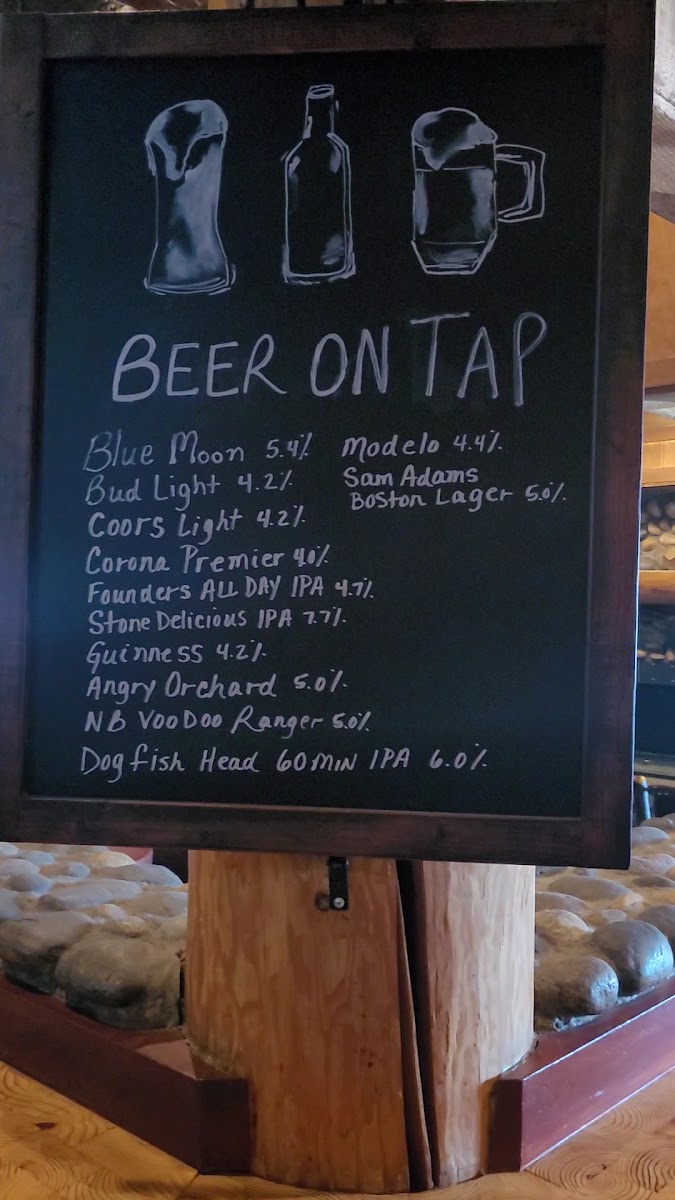 BEER ON TAP
Blue Moon 5.4%
Bud Light 4.2%
Coors Light 4.2%
Corona Premier 4.0%
Founders ALL DAY IPA 4.7%
Stone Delicious IPA 7.7%
Guinness 4.2%
Angry Orchard 5.0%
NB VooDoo Ranger 5.0%
Dogfish Head 60 MIN IPA 6.0%
Modelo 4.4%
Sam Adams
Boston Lager 5.0%